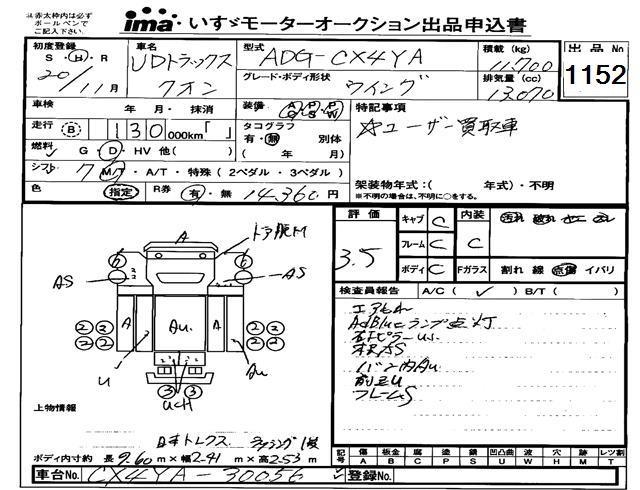 ※赤太枠内は必ず
ボールペンで
ご記入下さい。
ima いすゞモーターオークション出品申込書
初度登録 S・H・R 20/11月
車名 UDトラックス クオン
型式 ADG-CX4YA
グレード・ボディ形状 ウイング
積載(kg) 11,700
排気量(cc) 13,070
出品No 1152
車検 年・月・抹消
装備 A/C P/S P/W
特記事項
☆ユーザー買取車
走行 B 130 000km「 」
タコグラフ 有・無 別体
( 年 月)
燃料 G・D・HV 他( )
シフト 7 M/T・A/T・特殊(2ペダル・3ペダル)
架装物年式:( 年式)・不明
※不明の場合は、不明に○をする。
色 指定 R券 有・無 14,360円
評価 3.5
キャブ C
フレーム C
ボディ C
内装 C
Fガラス 割れ 線 点傷 イバリ
検査員報告 A/C(✓) B/T( )
エアもれ
AdBlueランプ点灯
右ピラーUS
バン内AU
前足U
フレームS
ドア脱M
A
6 6
AS AS
A AU. A
2 2 2 2
2 2 2 2
U AU
3 3
UCH
上物情報
日本トレクス
ボディ内寸約 長9.60m×幅2.41m×高2.53m
車台No. CX4YA-30056
✓登録No.
記号 傷 A 板金 B 腐 C 塗 P 錆 S 凹凸曲 U 波 W 穴 H 跡 M レツ割 T